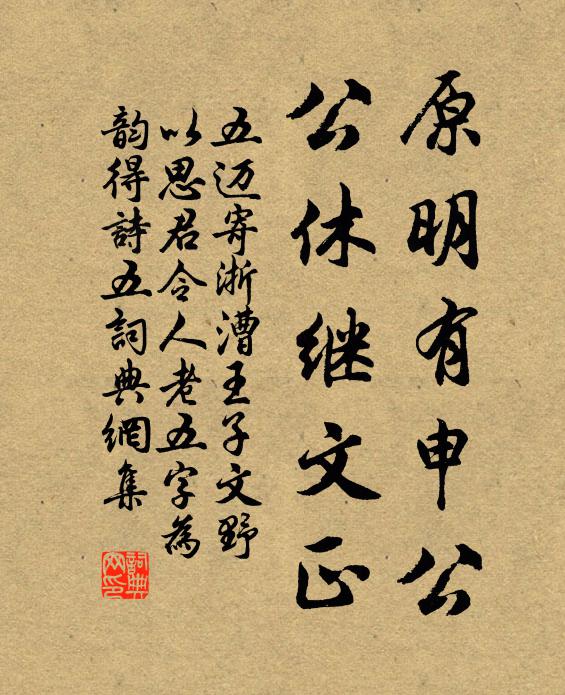 原明有申公
公休继文正
五迈寄浙漕王子文野
以思君令人老五字為
韵得詩五詞典網集
詞典網印